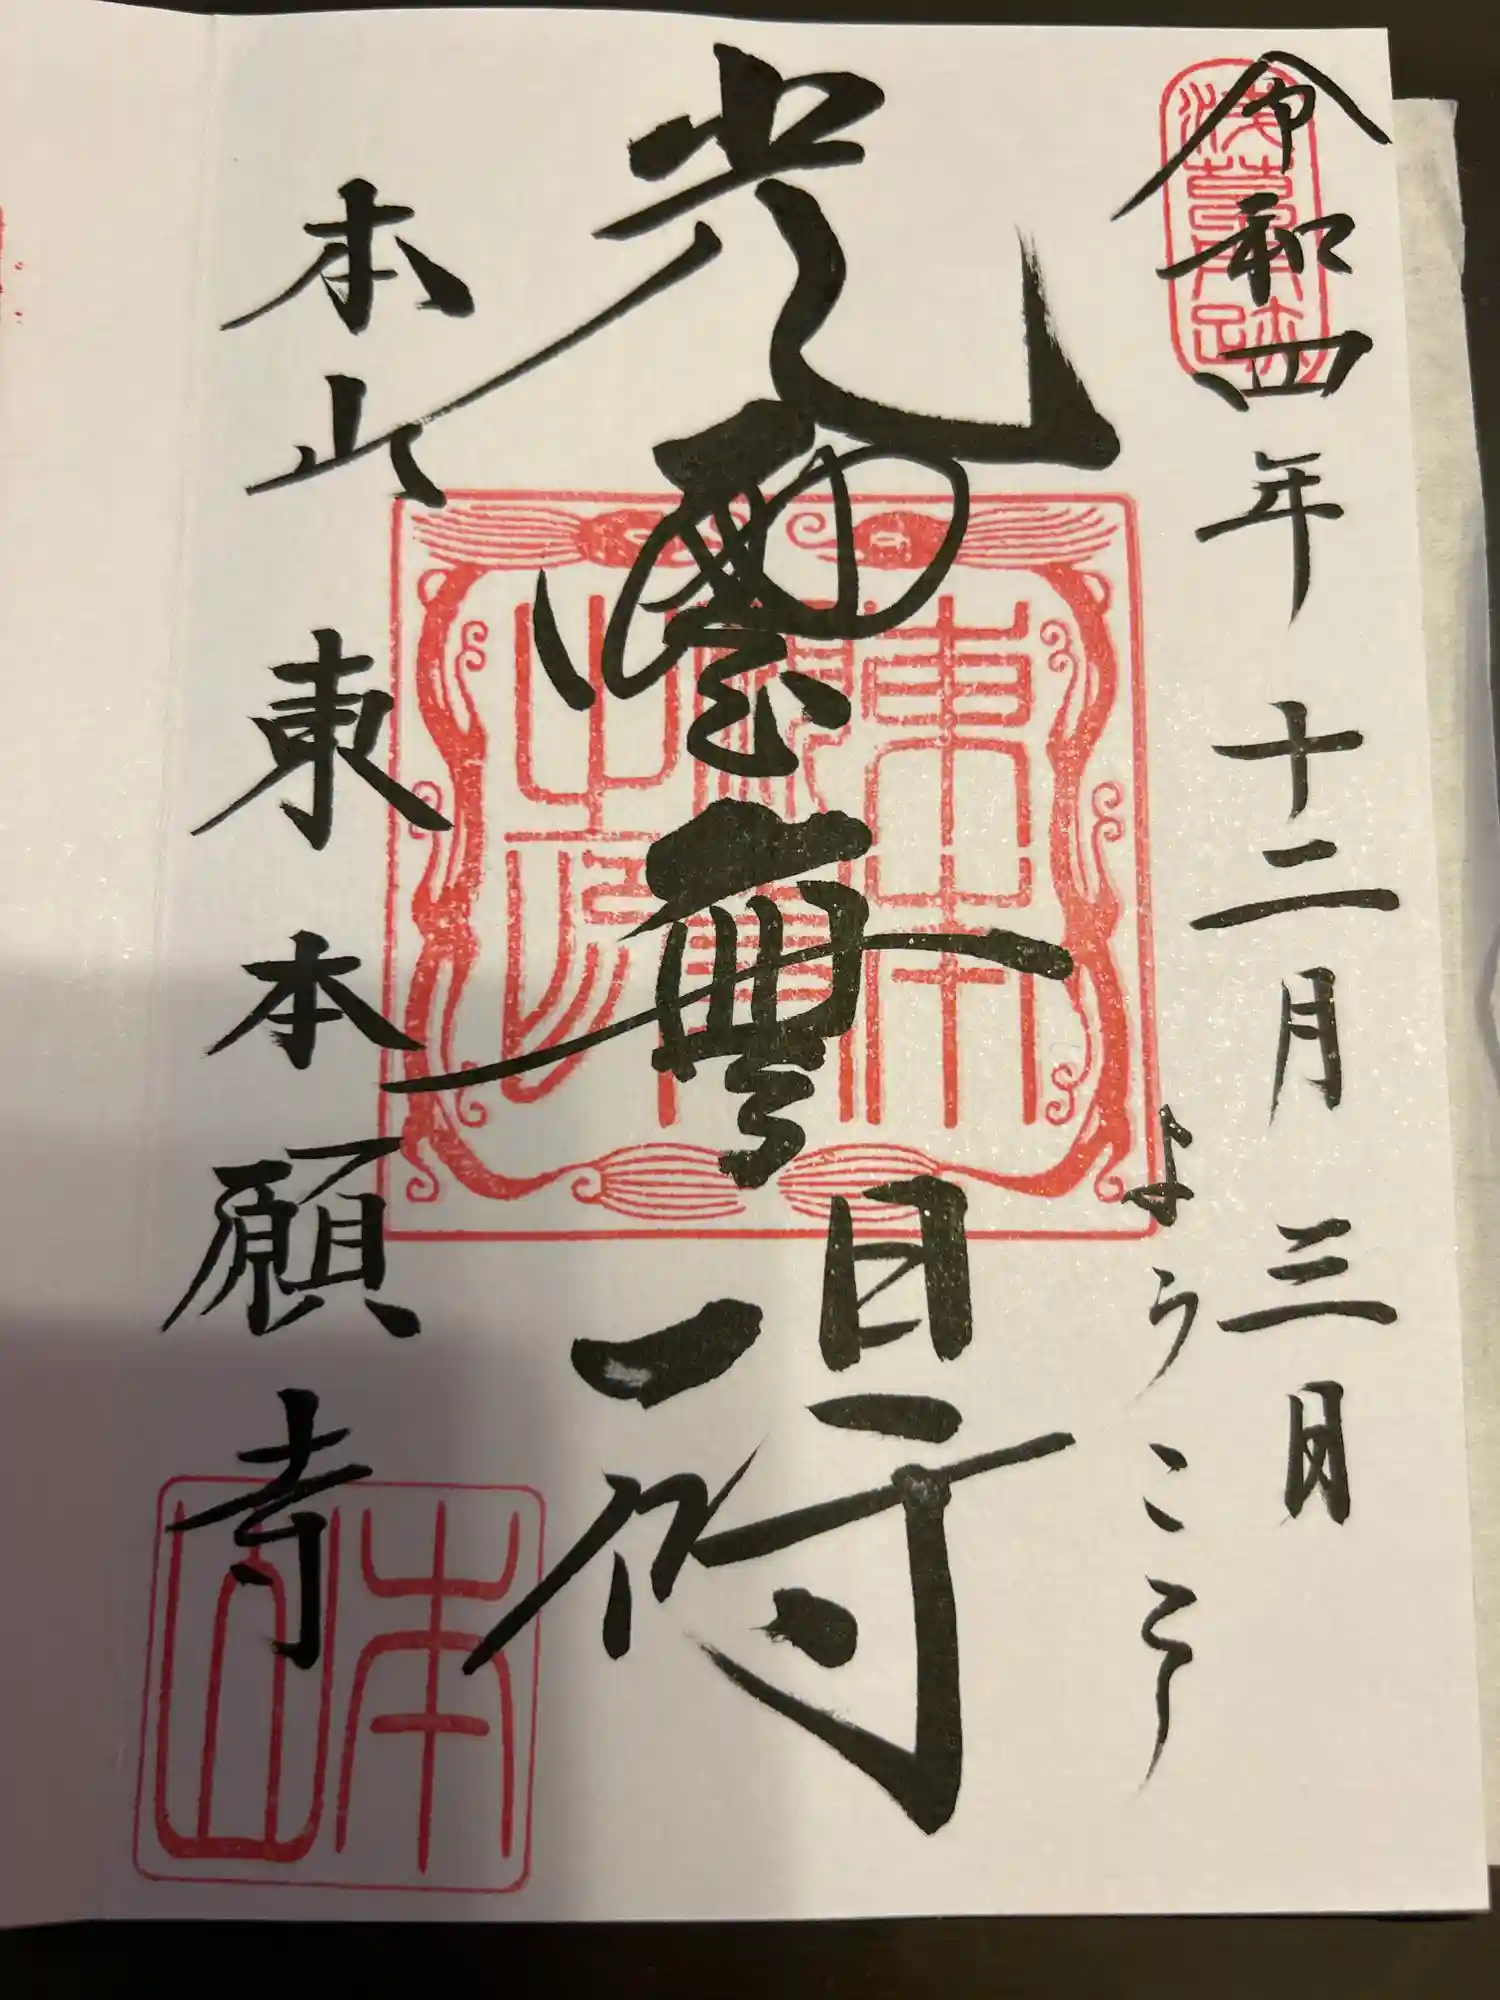 令和四年十二月三日
ようこそ
光雲無碍
本山東本願寺
浅草本跡
東本
願寺
之印
本山